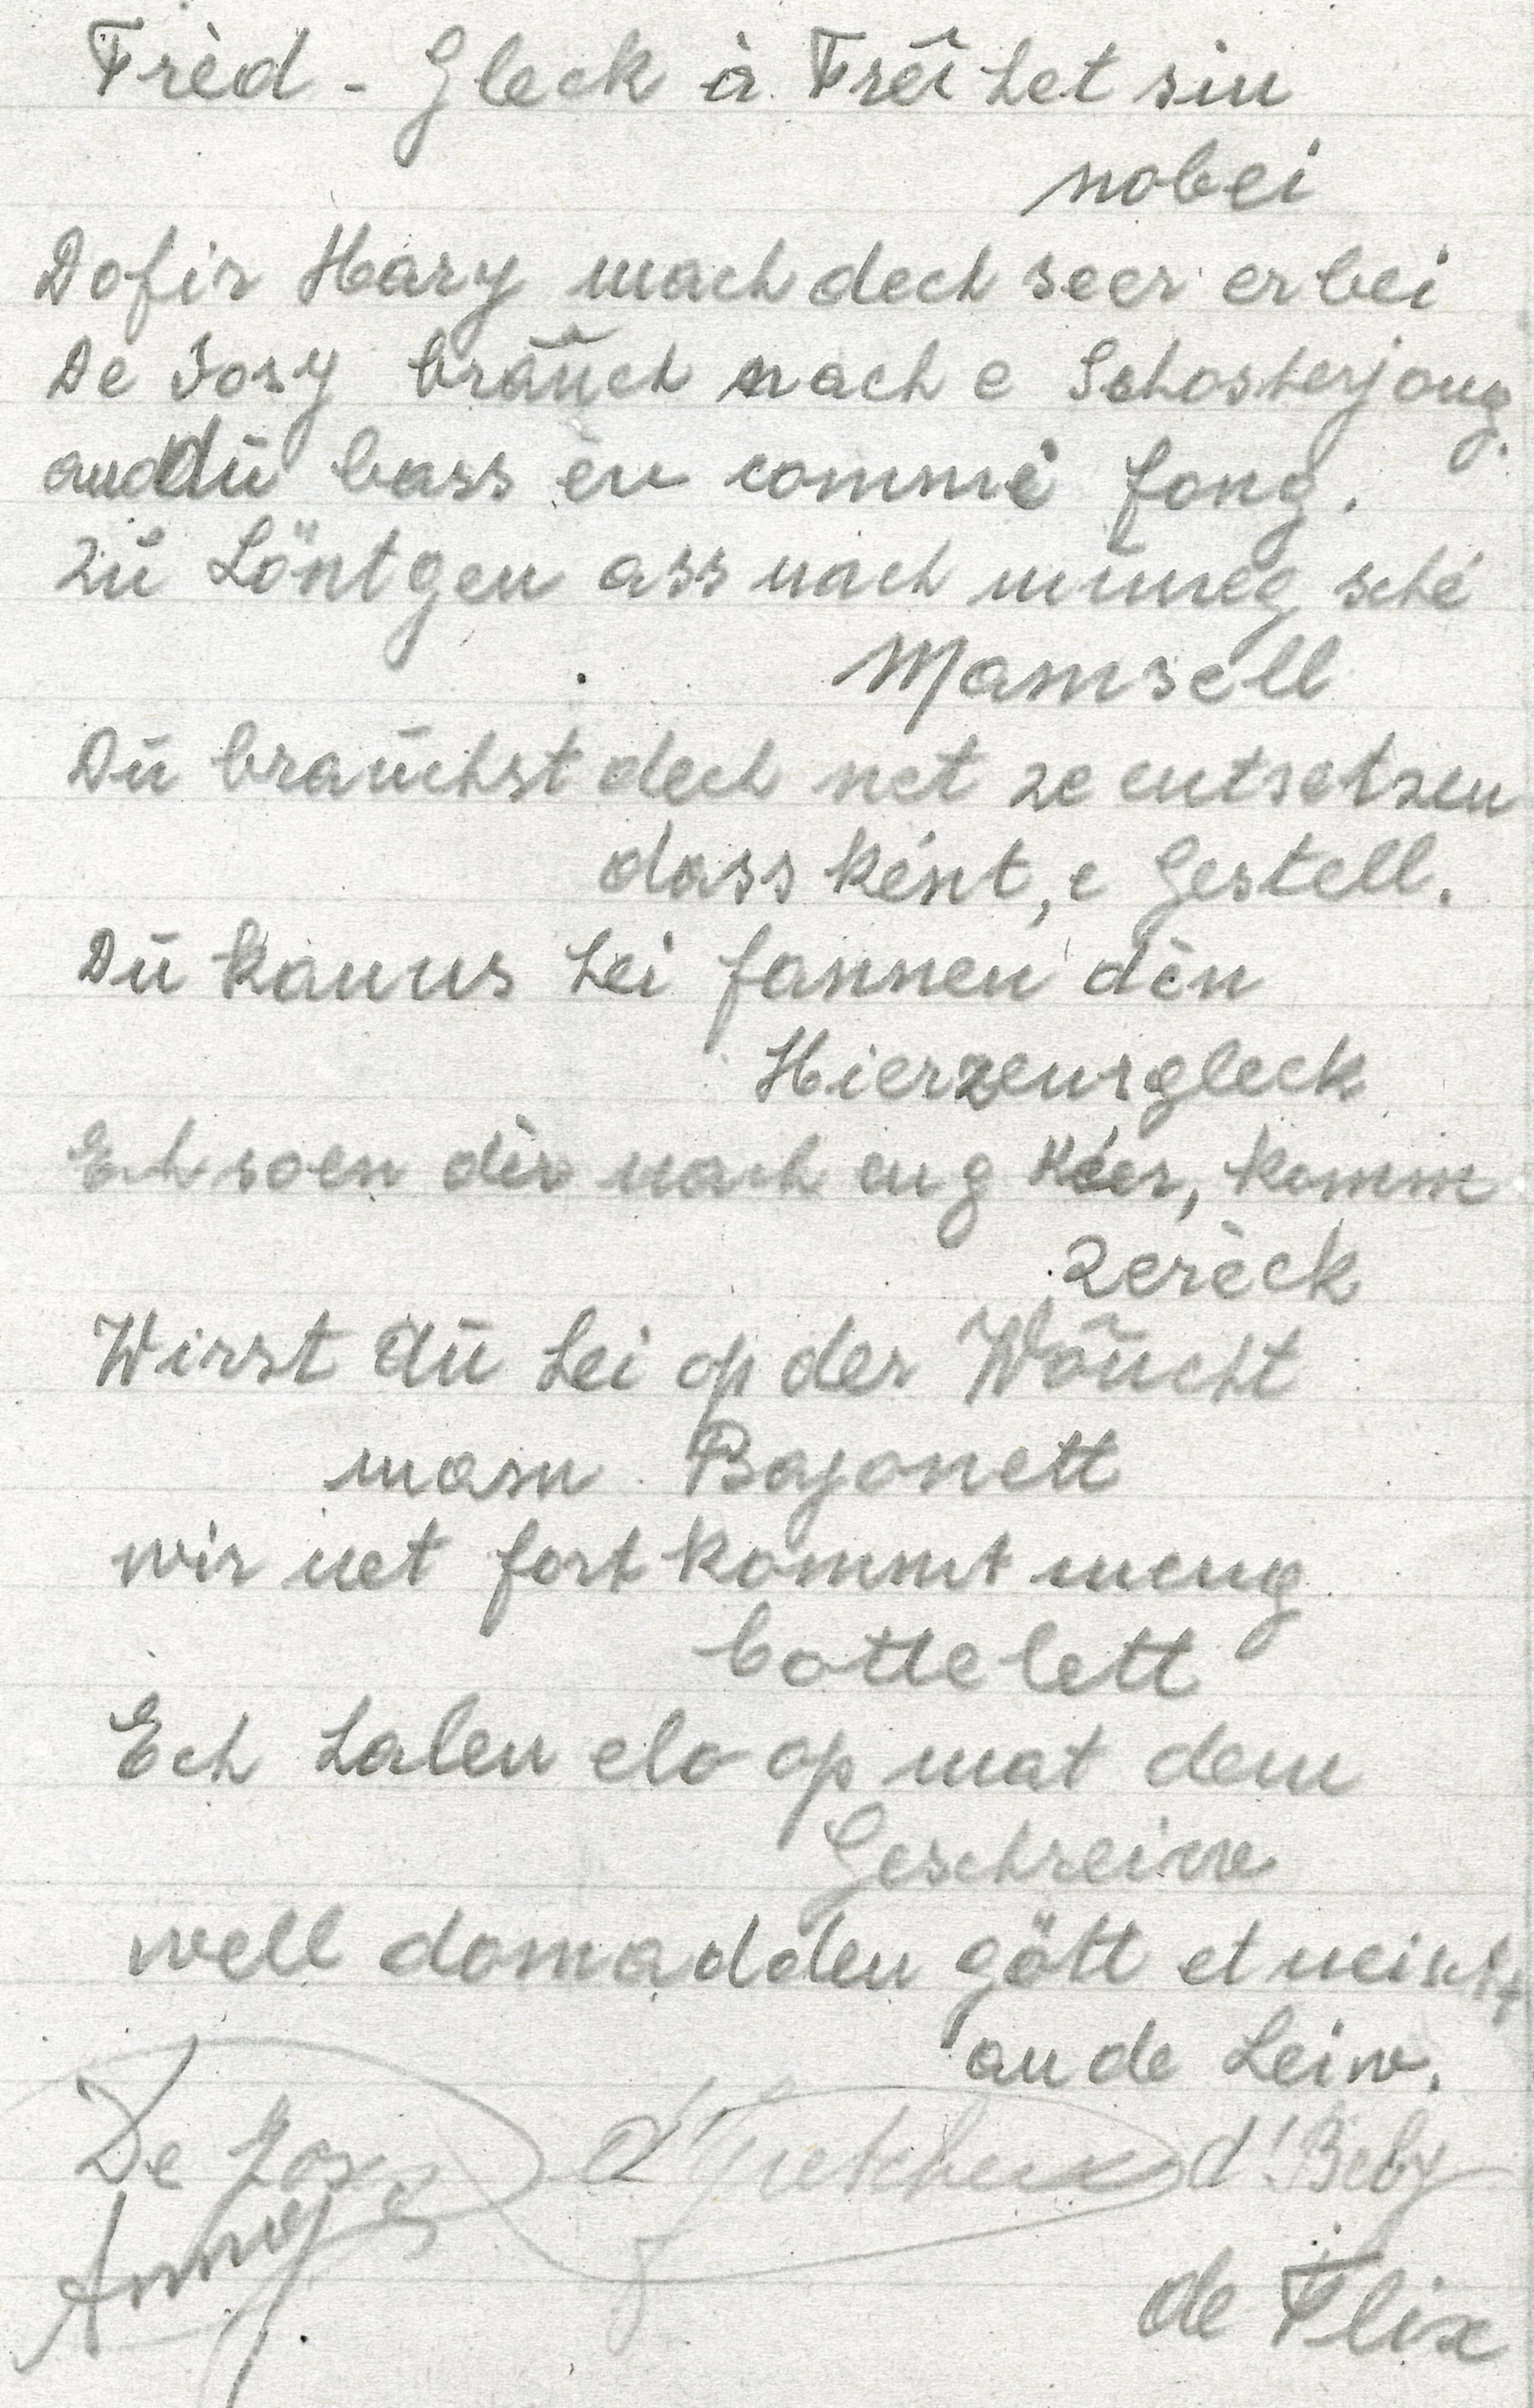 Frèd - Gleck à Freîhet sin
nobei
Dofir Hary mach dech seer erbei
De Josy bräuch nach e Schosterjong.
and dū bass en commé fong.
Zū Löntgen ass nach mūneg sché
Mamsell
Dū brauchst dech net ze entsetzen
dassként, e Gestell.
Dū kanns hei fannen dèn
Hierzensgleck
Ech soen dir nach eng Kéer, komm
zerèck
Wirst dū hei op der Wöucht
masn Bajonett
wir net fort kommt meng
Cottelett
Ech halen elo op mat dem
Geschreiw
well domadden gött et neischt
an de Leiw.
De Josy d'Gretchen d'Beby
Anny
de Flix